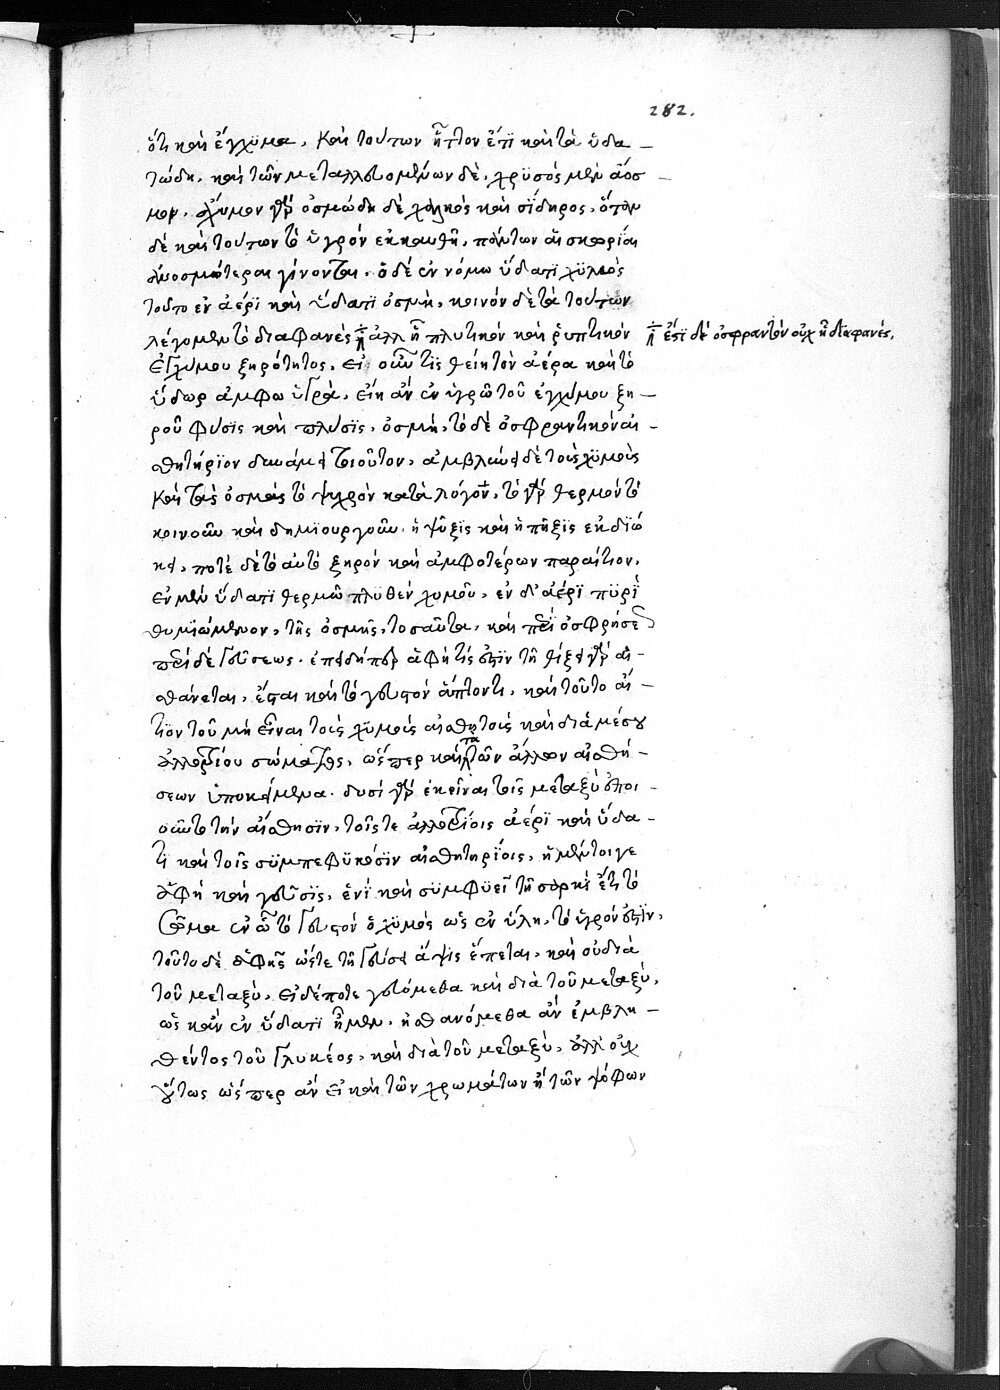 282.
ὅτι καὶ ἔγχϋμα. καὶ τούτων ἧττον ἐτϊ καὶ τὰ ὑδα
τώδη. καὶ τῶν μεταλλευομένων δὲ, χρϋσὸς μὲν ἄοσ
μον. ἄχϋμον γὰρ ὀσμώδη δὲ χαλκὸς καὶ σίδηρος, ὅταν
δὲ καὶ τούτων τὸ ὑγρὸν ἐκκαυθῆ, πάντων αἱ σκωρίαι
ἀνοσμότεραι γίνονται. ὃ δὲ ἐν νόμω ὕδατϊ χϋμὸς
τοῦτο ἐν ἀέρϊ καὶ ὕδατϊ ὀσμὴ, κοινὸν δὲ τὰ τούτων
λέγομεν τὸ διαφανές ἀλλ ἧ πλυτικὸν καὶ ῥυπτικὸν
ἔστϊ δὲ ὀσφραντὸν οὐχ ἧ διαφανές,
ἐγχύμου ξηρότητος. εἰ οὖν τϊς θείη τὸν ἀέρα καὶ τὸ
ὕδωρ ἄμφω ὑγρὰ, εἴη ἂν ἐν ὑγρῶ τοῦ ἐγχύμου ξη
ροῦ φύσϊς καὶ πλύσϊς, ὀσμὴ, τὸ δὲ ὀσφραντικὸν αἰ
σθητήρϊον δυνάμει τοιοῦτον, ἀμβλύνει δὲ τοὺς χϋμοὺς
καὶ τὰς ὀσμὰς τὸ ψυχρὸν κατὰ λόγον, τὸ γὰρ θερμὸν τὸ
κοινοῦν καὶ δημϊουργοῦν. ἡ ψῦξϊς καὶ ἡ πῆξϊς ἐκδϊώ
κει, ποτὲ δὲ τὸ αὐτὸ ξηρὸν καὶ ἀμφοτέρων παραίτιον.
ἐν μὲν ὕδατϊ θερμῶ πλϋθὲν χυμοῦ, ἐν δ' ἀέρϊ πϋρὶ
θυμϊώμενον, τῆς ὀσμῆς, τοσαῦτα, καὶ περὶ ὀσφρήσε
περὶ δὲ γεύσεως. ἐπειδήπερ ἁφή τίς ἐστϊν τῆ θίξει γὰρ αἰ
σθάνεται, ἔσται καὶ τὸ γευστὸν ἅπτοντι, καὶ τοῦτο αἴ
τϊον τοῦ μὴ εἶναι τοὺς χϋμοὺς αἰσθητοὺς καὶ διὰ μέσου
ἀλλοτρίου σώματος, ὥσπερ καὶ τὰ τῶν ἄλλων αἰσθή
σεων ὑποκείμενα. δυσὶ γὰρ ἐκεῖναι τοῖς μεταξὺ ἐποι
οῦντο τὴν αἴσθησϊν, τοῖς τε ἀλλοτρίοις ἀέρϊ καὶ ὕδα
τϊ καὶ τοῖς σϋμπεφϋκόσϊν αἰσθητηρϊοις, ἡ μέντοιγε
ἁφὴ καὶ γεῦσϊς, ἑνὶ καὶ σϋμφϋεῖ τῆ σαρκὶ ἔτι τὸ
σῶμα ἐν ὧ τὸ γευστὸν ὁ χϋμὸς ὡς ἐν ὕλη, τὸ ὑγρὸν ἐστϊν,
τοῦτο δὲ ἁφῆς ὥστε τῆ γεύσει ἅψϊς ἕπεται, καὶ οὐ διὰ
τοῦ μεταξὺ, εἰ δέ ποτε γευόμεθα καὶ διὰ τοῦ μεταξὺ,
ὡς κἂν ἐν ὕδατϊ ἦμεν, ἠσθανόμεθα ἂν ἐμβλη
θέντος τοῦ γλυκέος, καὶ διὰ τοῦ μεταξὺ, ἀλλ' οὐχ
οὕτως ὥσπερ ἂν εἰ καὶ τῶν χρωμάτων ἢ τῶν ψόφων